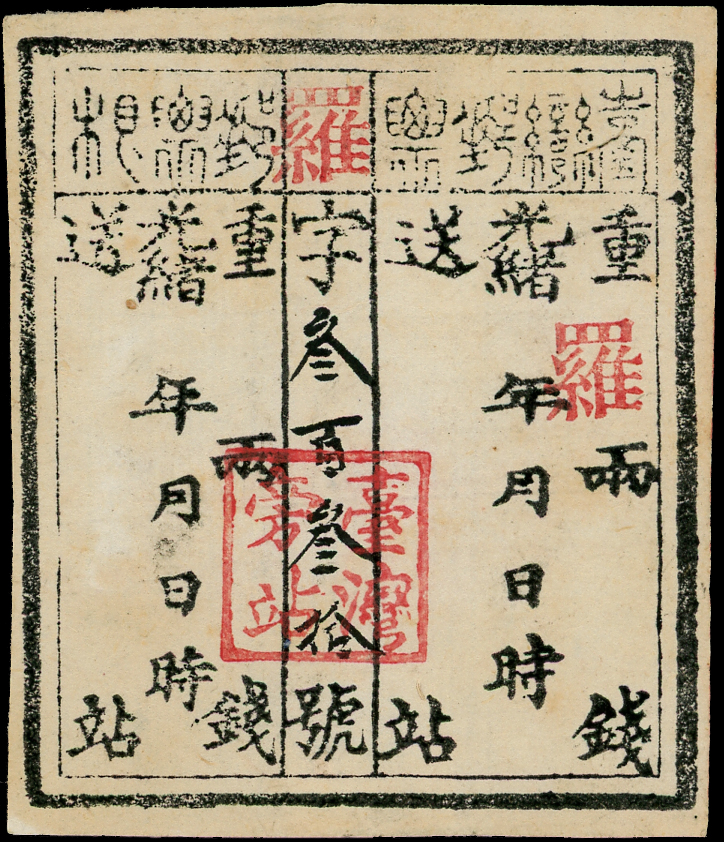 臺灣郵票
重 兩 錢
羅
光緒 年月日時
送 站
羅字叁百叁拾號
郵票根
重 兩 錢
光緒 年月日時
送 站
臺灣
旁站